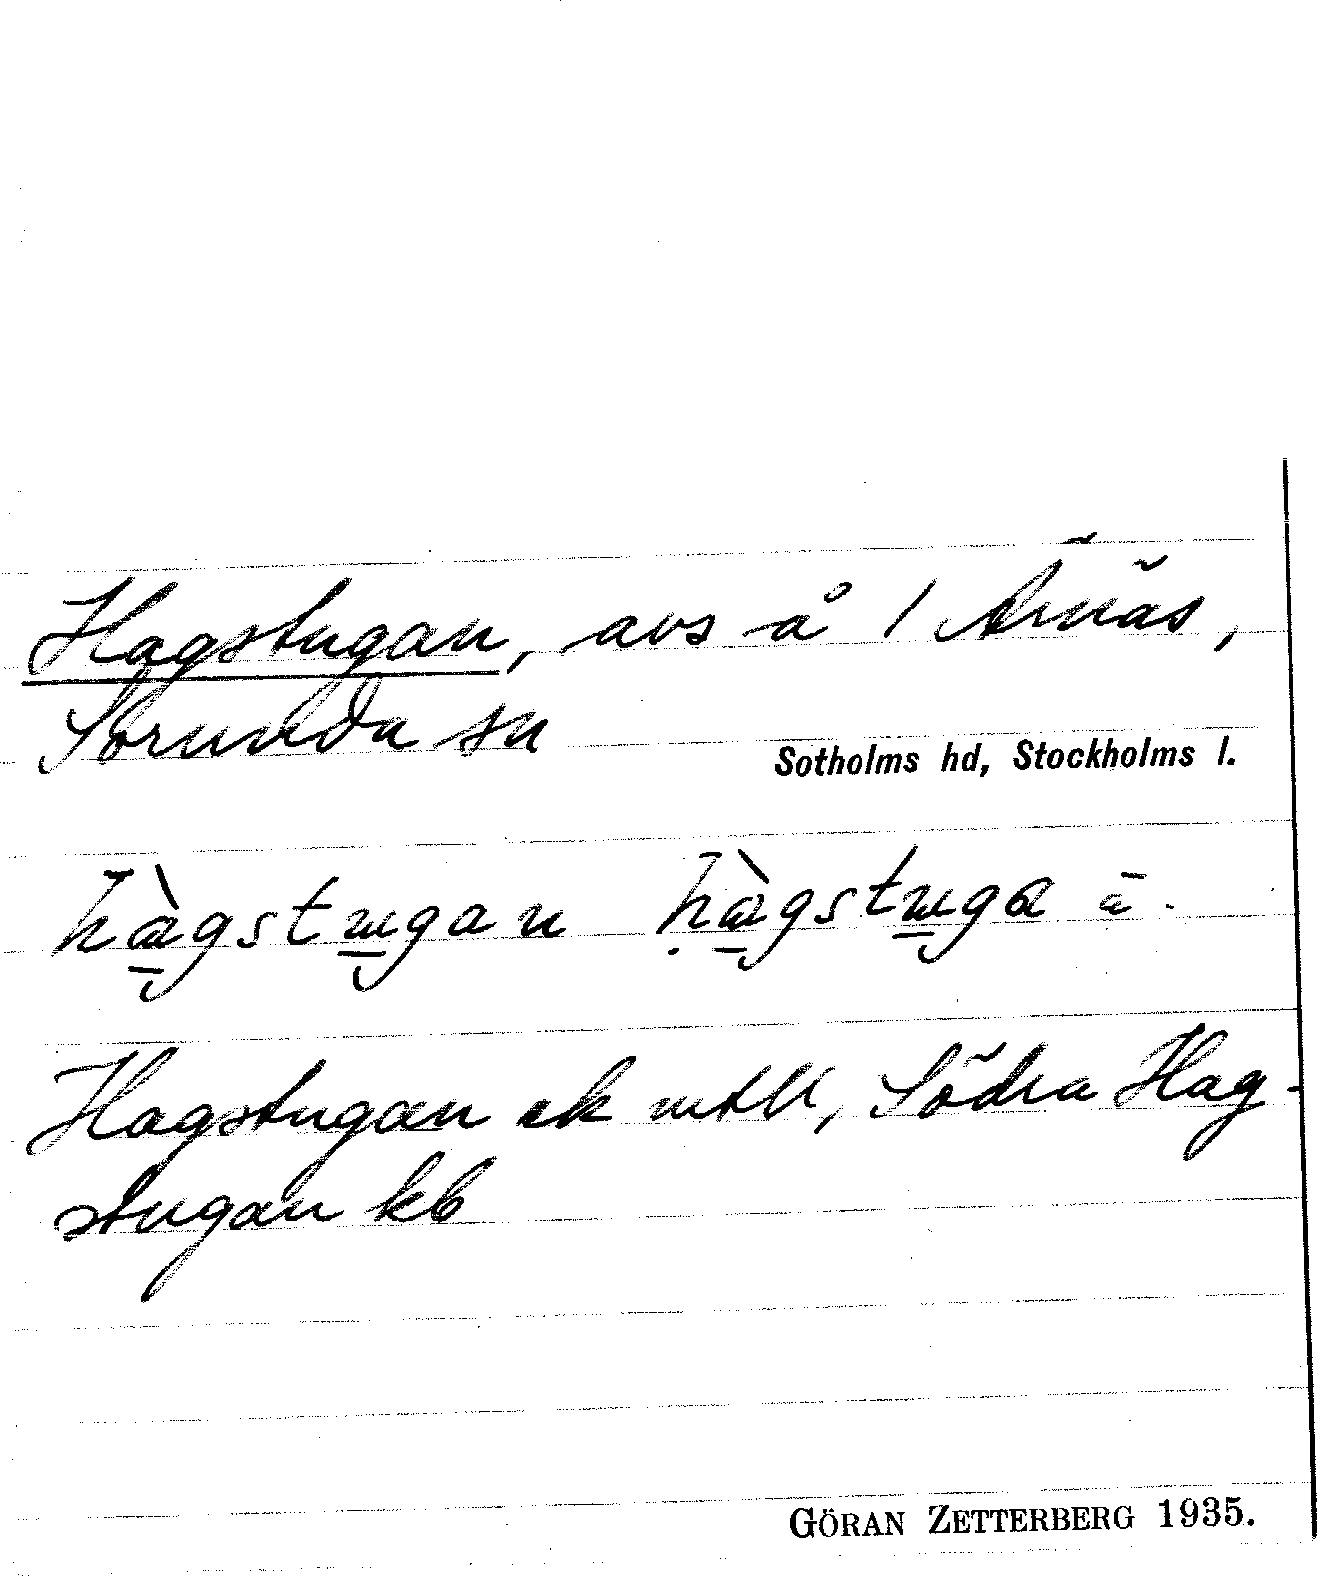 Hagstugan, avs å 1 Ärnäs,
Sorunda sn
Sotholms hd, Stockholms l.
hàgstugan hàgstuga
Hagstugan ek mtll, Södra Hag-
stugan kb
GÖRAN ZETTERBERG 1935.